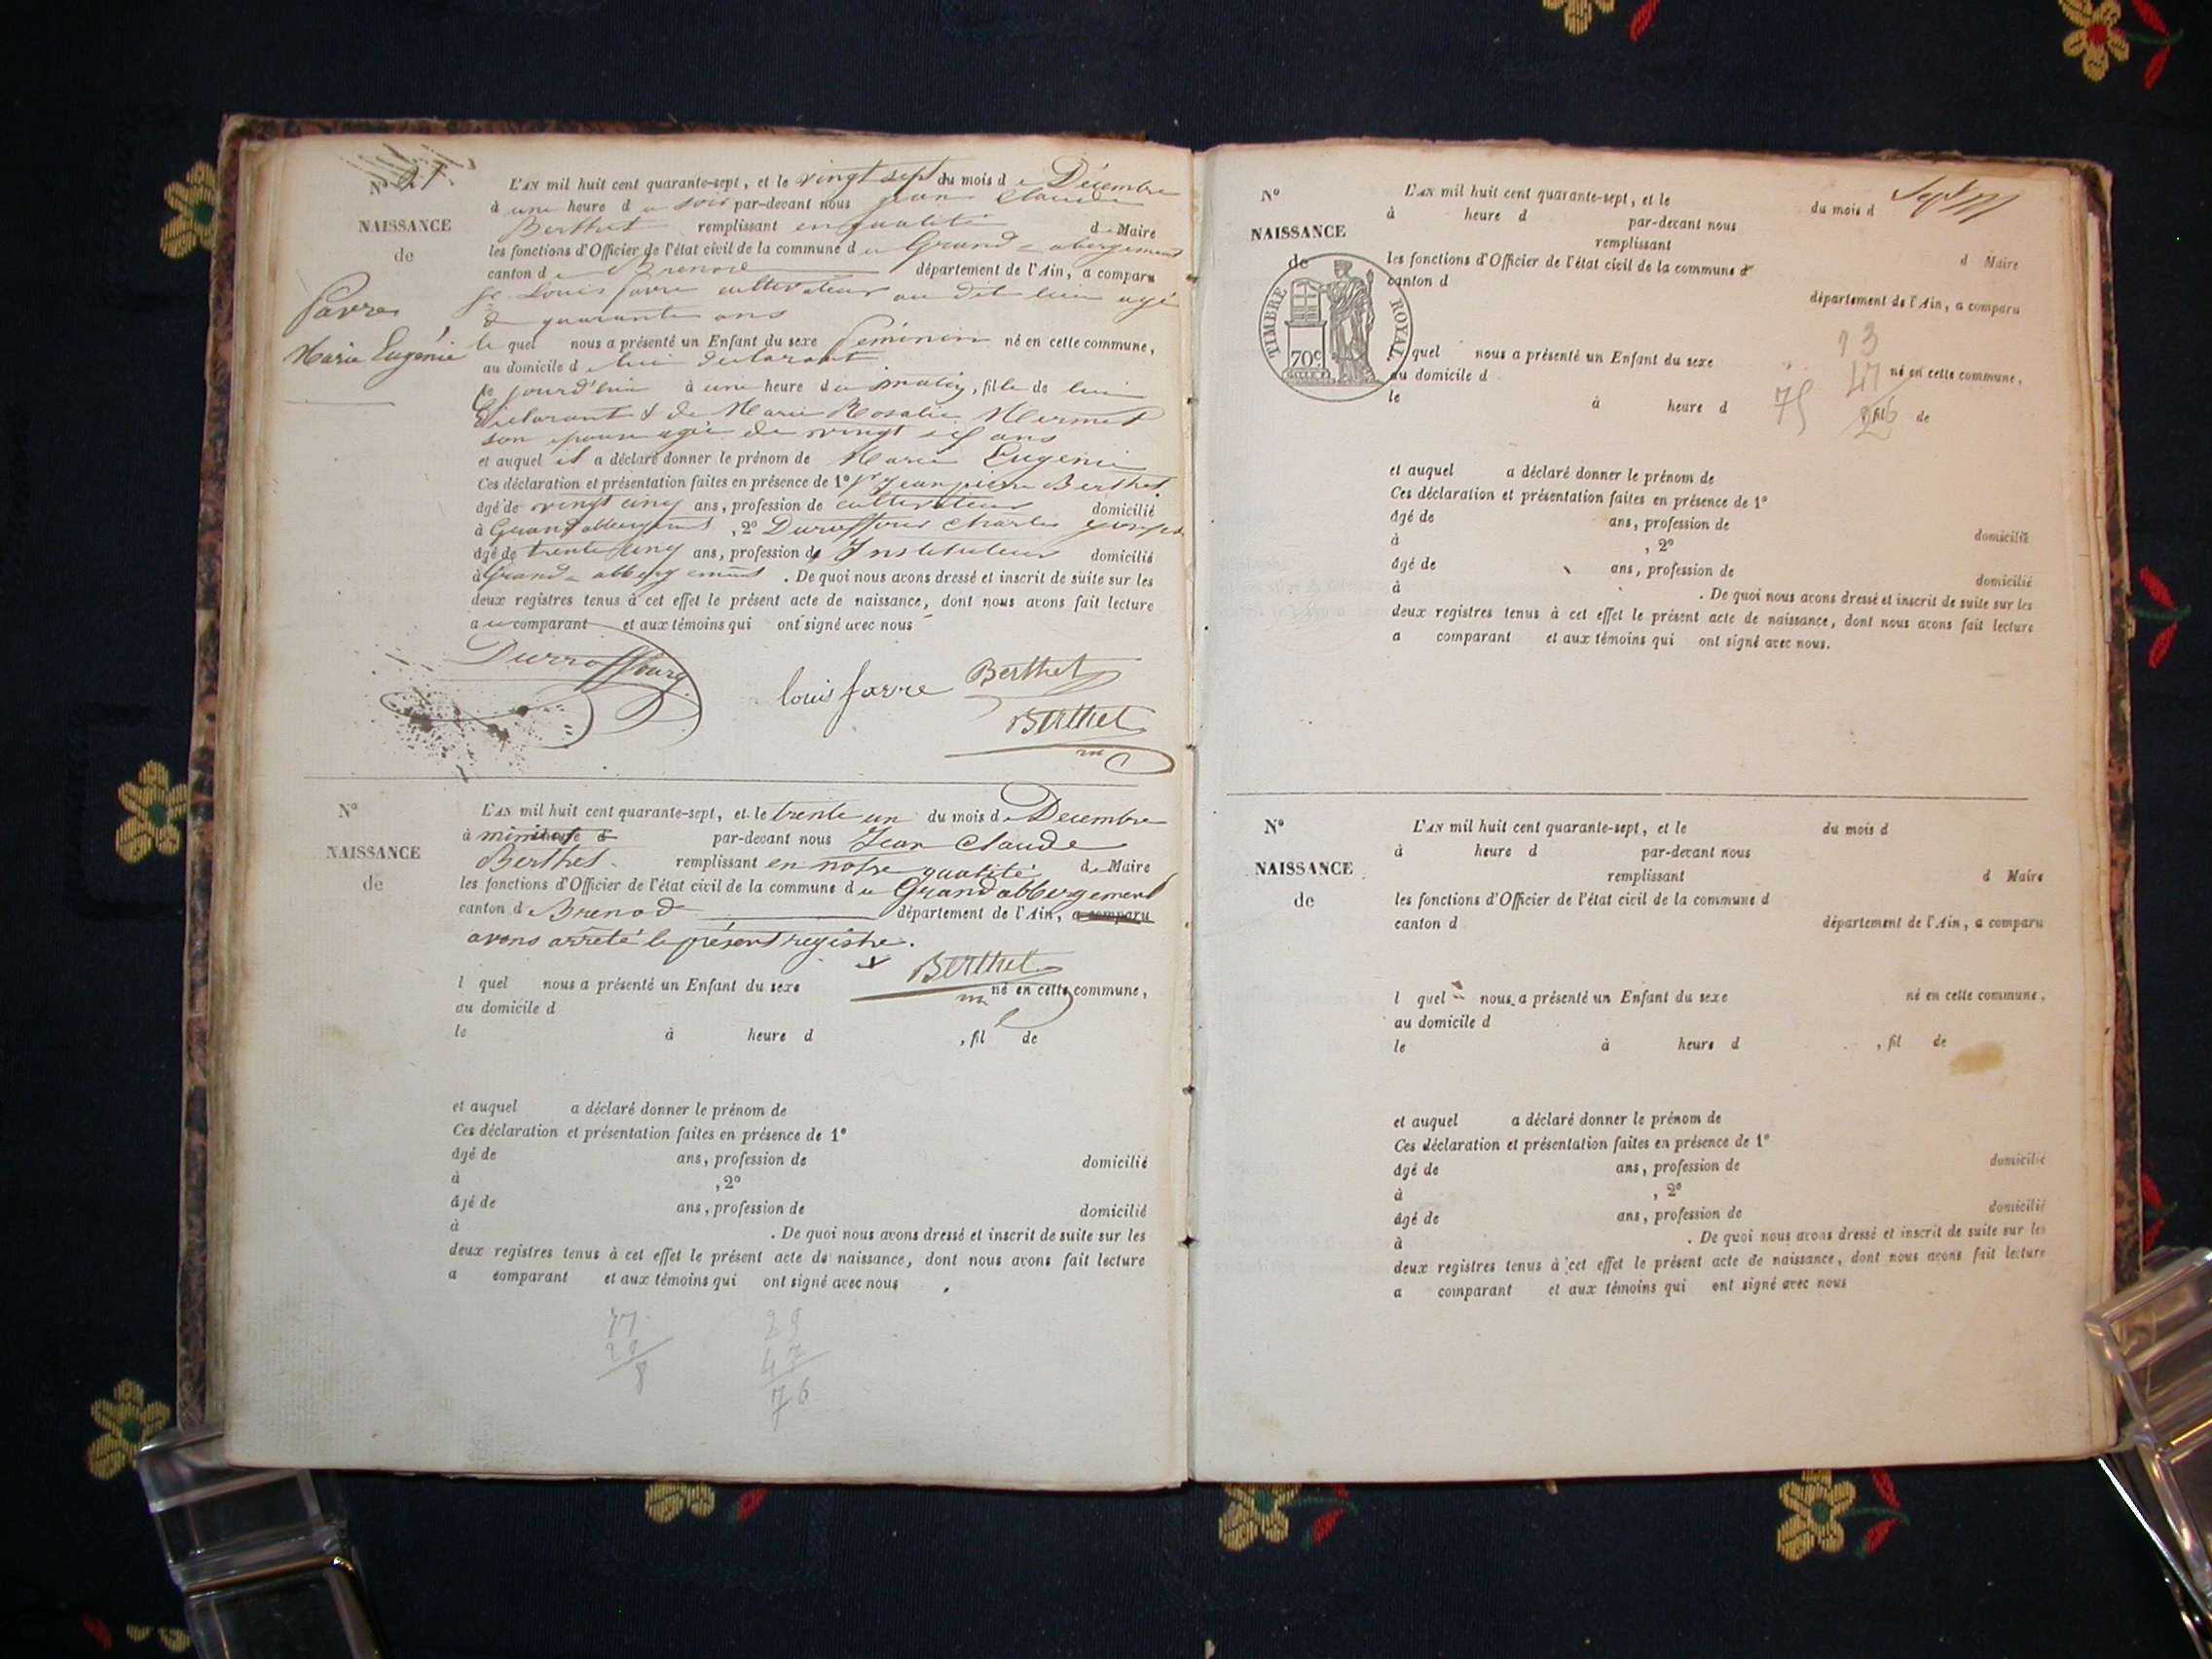 N° 27
NAISSANCE
de
Favre
Marie Eugénie
L'AN mil huit cent quarante-sept, et le vingt sept du mois de Décembre
à une heure du soir par-devant nous Jean Claude
Berthet remplissant en qualité de Maire
les fonctions d'Officier de l'état civil de la commune du Grand-abergement
canton de Brenod département de l'Ain, a comparu
sr Louis favre cultivateur au dit lieu agé
de quarante ans
lequel nous a présenté un Enfant du sexe féminin né en cette commune,
au domicile de lui declarant
ce jourd'hui à une heure du matin, fille de lui
déclarant & de Marie Rosalie Mermet
son epouse agée de vingt ans
et auquel il a déclaré donner le prénom de Marie Eugenie
Ces déclaration et présentation faites en présence de 1° sr Jean pierre Berthet
âgé de vingt cinq ans, profession de cultivateur domicilié
à Grand abbergement, 2° Durraffourg Charles joseph
âgé de trente cinq ans, profession d' Instituteur domicilié
à Grand-abbergement. De quoi nous avons dressé et inscrit de suite sur les
deux registres tenus à cet effet le présent acte de naissance, dont nous avons fait lecture
au comparant et aux témoins qui ont signé avec nous
Durraffourg
louis favre Berthet
Berthet
m
N°
NAISSANCE
de
L'AN mil huit cent quarante-sept, et le trente un du mois de Decembre
à minuit heure d par-devant nous Jean Claude
Berthet remplissant en notre qualité de Maire
les fonctions d'Officier de l'état civil de la commune du Grand abbergement
canton de Brenod département de l'Ain, a comparu
avons arrêté le présent registre.
Berthet
m
l quel nous a présenté un Enfant du sexe né en cette commune,
au domicile d
le à heure d , fil de
et auquel a déclaré donner le prénom de
Ces déclaration et présentation faites en présence de 1°
âgé de ans, profession de domicilié
à , 2°
âgé de ans, profession de domicilié
à . De quoi nous avons dressé et inscrit de suite sur les
deux registres tenus à cet effet le présent acte de naissance, dont nous avons fait lecture
a comparant et aux témoins qui ont signé avec nous
29
47
76
N°
NAISSANCE
de
TIMBRE ROYAL
70c
L'AN mil huit cent quarante-sept, et le du mois d
à heure d par-devant nous
remplissant d Maire
les fonctions d'Officier de l'état civil de la commune d
canton d département de l'Ain, a comparu
13
47
75
l quel nous a présenté un Enfant du sexe né en cette commune,
au domicile d
le à heure d , fil de
et auquel a déclaré donner le prénom de
Ces déclaration et présentation faites en présence de 1°
âgé de ans, profession de domicilié
à , 2°
âgé de ans, profession de domicilié
à . De quoi nous avons dressé et inscrit de suite sur les
deux registres tenus à cet effet le présent acte de naissance, dont nous avons fait lecture
a comparant et aux témoins qui ont signé avec nous.
N°
NAISSANCE
de
L'AN mil huit cent quarante-sept, et le du mois d
à heure d par-devant nous
remplissant d Maire
les fonctions d'Officier de l'état civil de la commune d
canton d département de l'Ain, a comparu
l quel nous a présenté un Enfant du sexe né en cette commune,
au domicile d
le à heure d , fil de
et auquel a déclaré donner le prénom de
Ces déclaration et présentation faites en présence de 1°
âgé de ans, profession de domicilié
à , 2°
âgé de ans, profession de domicilié
à . De quoi nous avons dressé et inscrit de suite sur les
deux registres tenus à cet effet le présent acte de naissance, dont nous avons fait lecture
a comparant et aux témoins qui ont signé avec nous